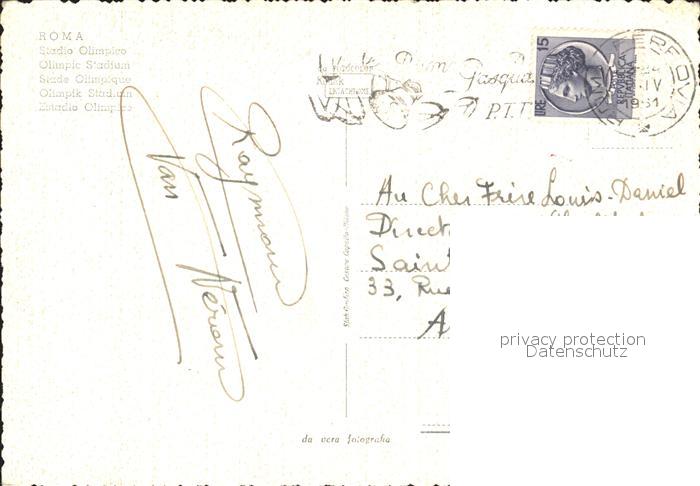 ROMA
Stadio Olimpico
Olimpic Stadium
Stade Olimpique
Olimpik Stadium
Estadio Olimpico
Buona Pasqua
P.T.T
LIRE 15
REPUBBLICA ITALIANA
ROMA FERROVIA
IV
1961
Raymond
Van
Au Cher Frère Louis-Daniel
Direct
Saint
33, Rue
A
privacy protection
Datenschutz
da vera fotografia